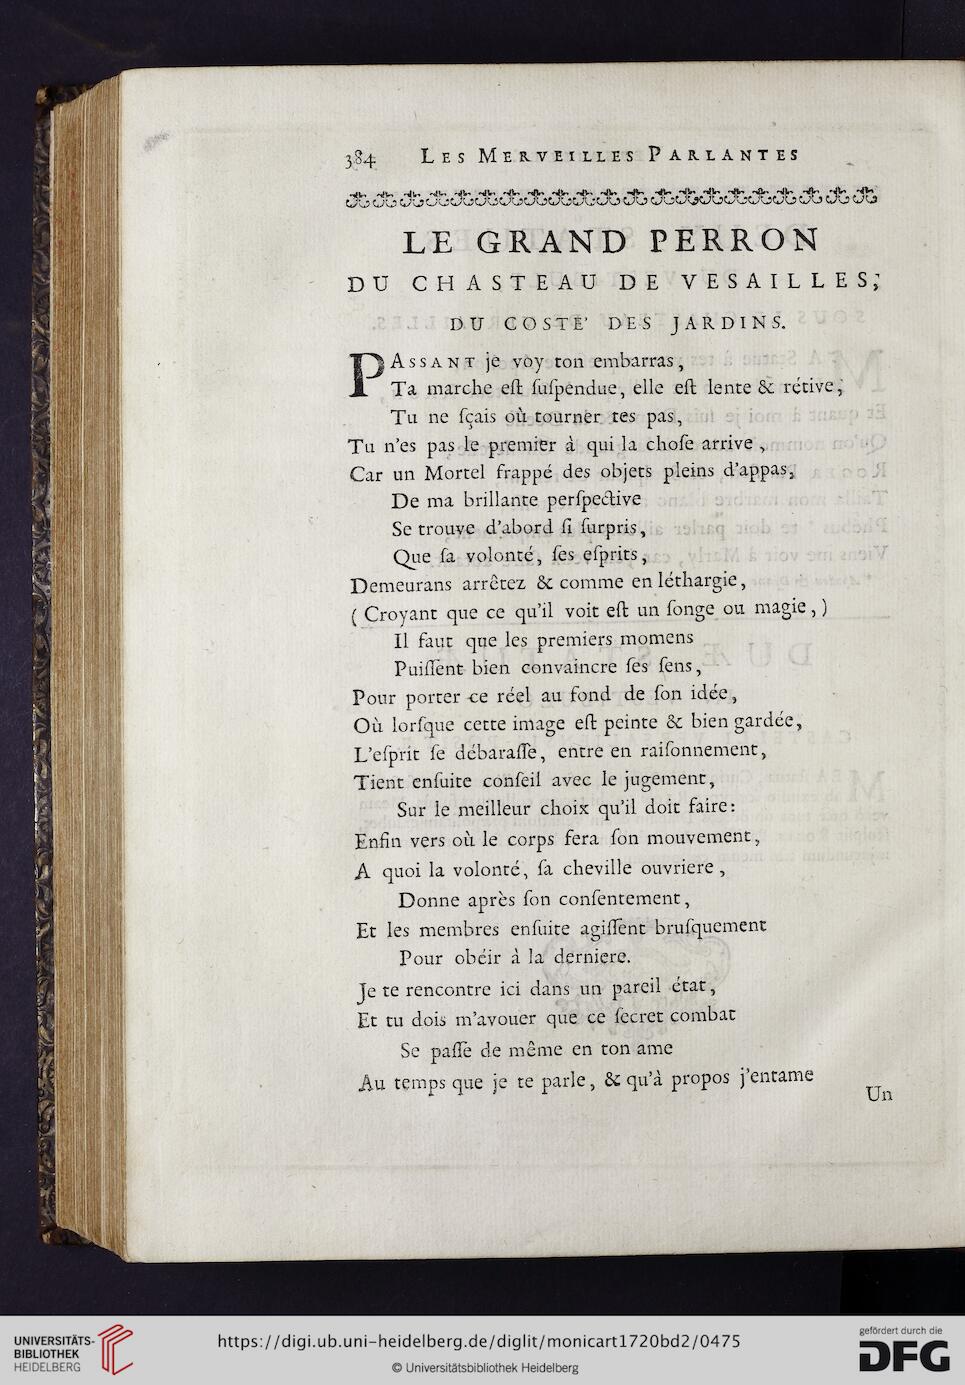 384 LES MERVEILLES PARLANTES
LE GRAND PERRON
DU CHASTEAU DE VESAILLES;
DU COSTE' DES JARDINS.
PASSANT je voy ton embarras,
Ta marche eſt ſuſpendue, elle eſt lente & rétive;
Tu ne ſçais où tourner tes pas,
Tu n'es pas le premier à qui la choſe arrive,
Car un Mortel frappé des objets pleins d'appas,
De ma brillante perſpective
Se trouve d'abord ſi ſurpris,
Que ſa volonté, ſes eſprits,
Demeurans arrêtez & comme en léthargie,
( Croyant que ce qu'il voit eſt un ſonge ou magie, )
Il faut que les premiers momens
Puiſſent bien convaincre ſes ſens,
Pour porter ce réel au fond de ſon idée,
Où lorſque cette image eſt peinte & bien gardée,
L'eſprit ſe débaraſſe, entre en raiſonnement,
Tient enſuite conſeil avec le jugement,
Sur le meilleur choix qu'il doit faire:
Enfin vers où le corps fera ſon mouvement,
A quoi la volonté, ſa cheville ouvriere,
Donne après ſon conſentement,
Et les membres enſuite agiſſent bruſquement
Pour obéir à la derniere.
Je te rencontre ici dans un pareil état,
Et tu dois m'avouer que ce ſecret combat
Se paſſe de même en ton ame
Au temps que je te parle, & qu'à propos j'entame
Un
UNIVERSITÄTS-
BIBLIOTHEK
HEIDELBERG
https://digi.ub.uni-heidelberg.de/diglit/monicart1720bd2/0475
© Universitätsbibliothek Heidelberg
gefördert durch die
DFG